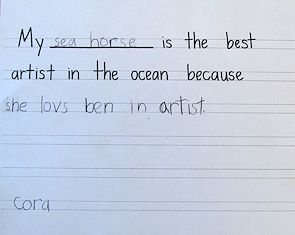 My sea horse is the best
artist in the ocean because
she lovs ben in artist.
Cora